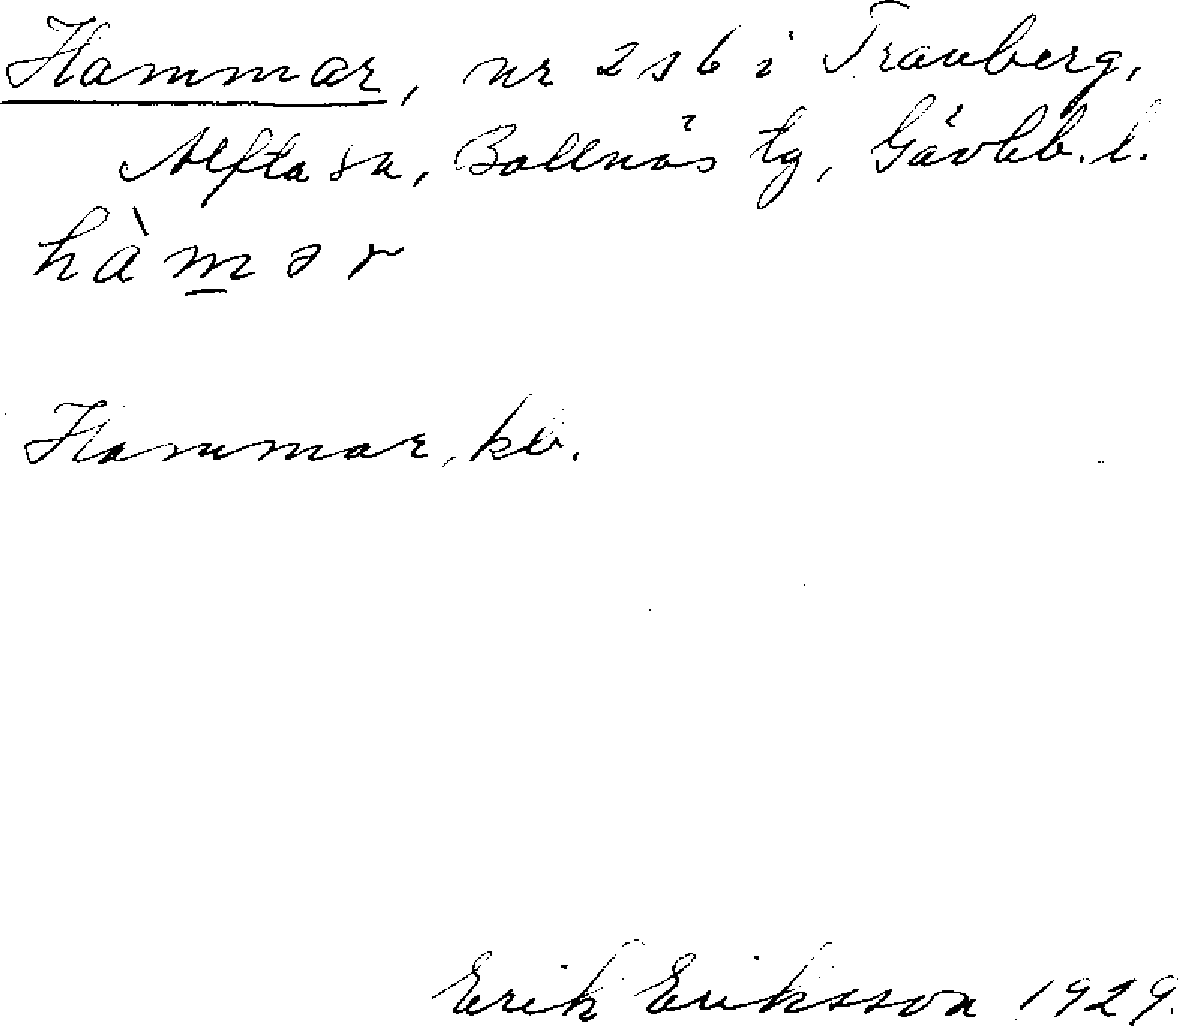 Hammar, nr 2 s 6 i Tranberg,
Alfta sn, Bollnäs tg, Gävleb. l.
hàm̲ər
Hammar, kb.
Erik Eriksson 1929.